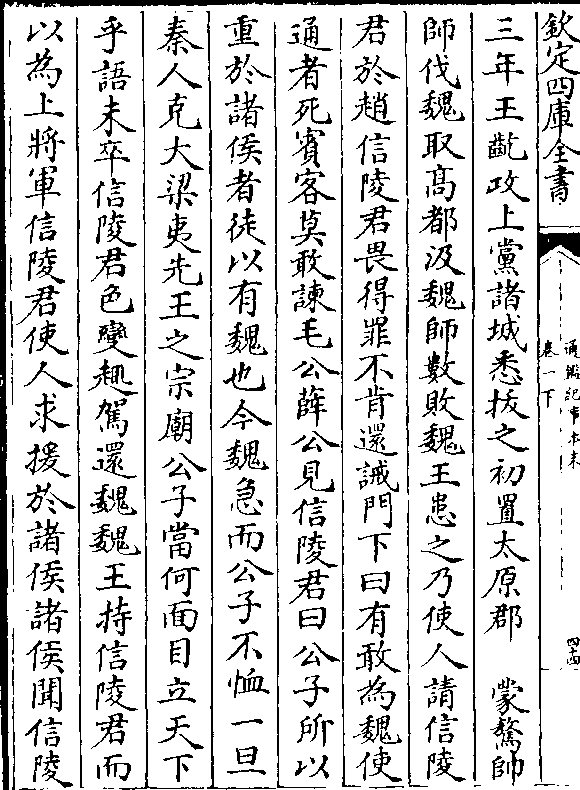 欽定四庫全書
通鑑紀事本末
卷一下
四十四
三年王齕攻上黨諸城悉拔之初置太原郡 蒙驁帥
師伐魏取高都汲魏師數敗魏王患之乃使人請信陵
君於趙信陵君畏得罪不肯還誡門下曰有敢為魏使
通者死賓客莫敢諫毛公薛公見信陵君曰公子所以
重於諸侯者徒以有魏也今魏急而公子不恤一旦
秦人克大梁夷先王之宗廟公子當何面目立天下
乎語未卒信陵君色變趣駕還魏魏王持信陵君而
以為上將軍信陵君使人求援於諸侯諸侯聞信陵